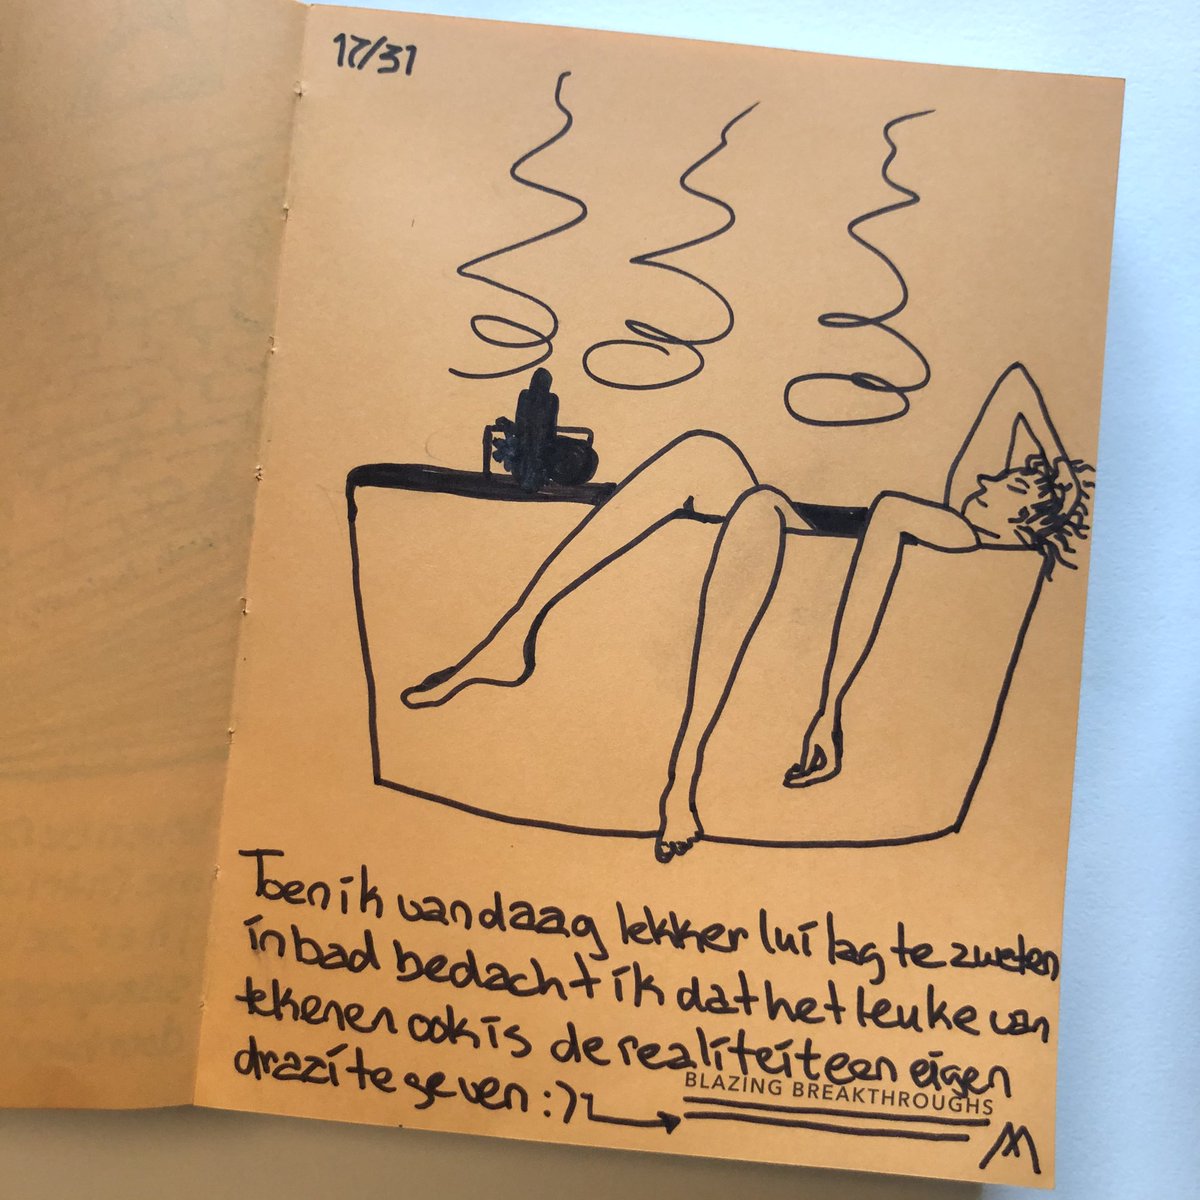 17/31
Toen ik vandaag lekker lui lag te zweten
in bad bedacht ik dat het leuke van
tekenen ook is de realiteit een eigen
drazi te geven :)
BLAZING BREAKTHROUGHS
M